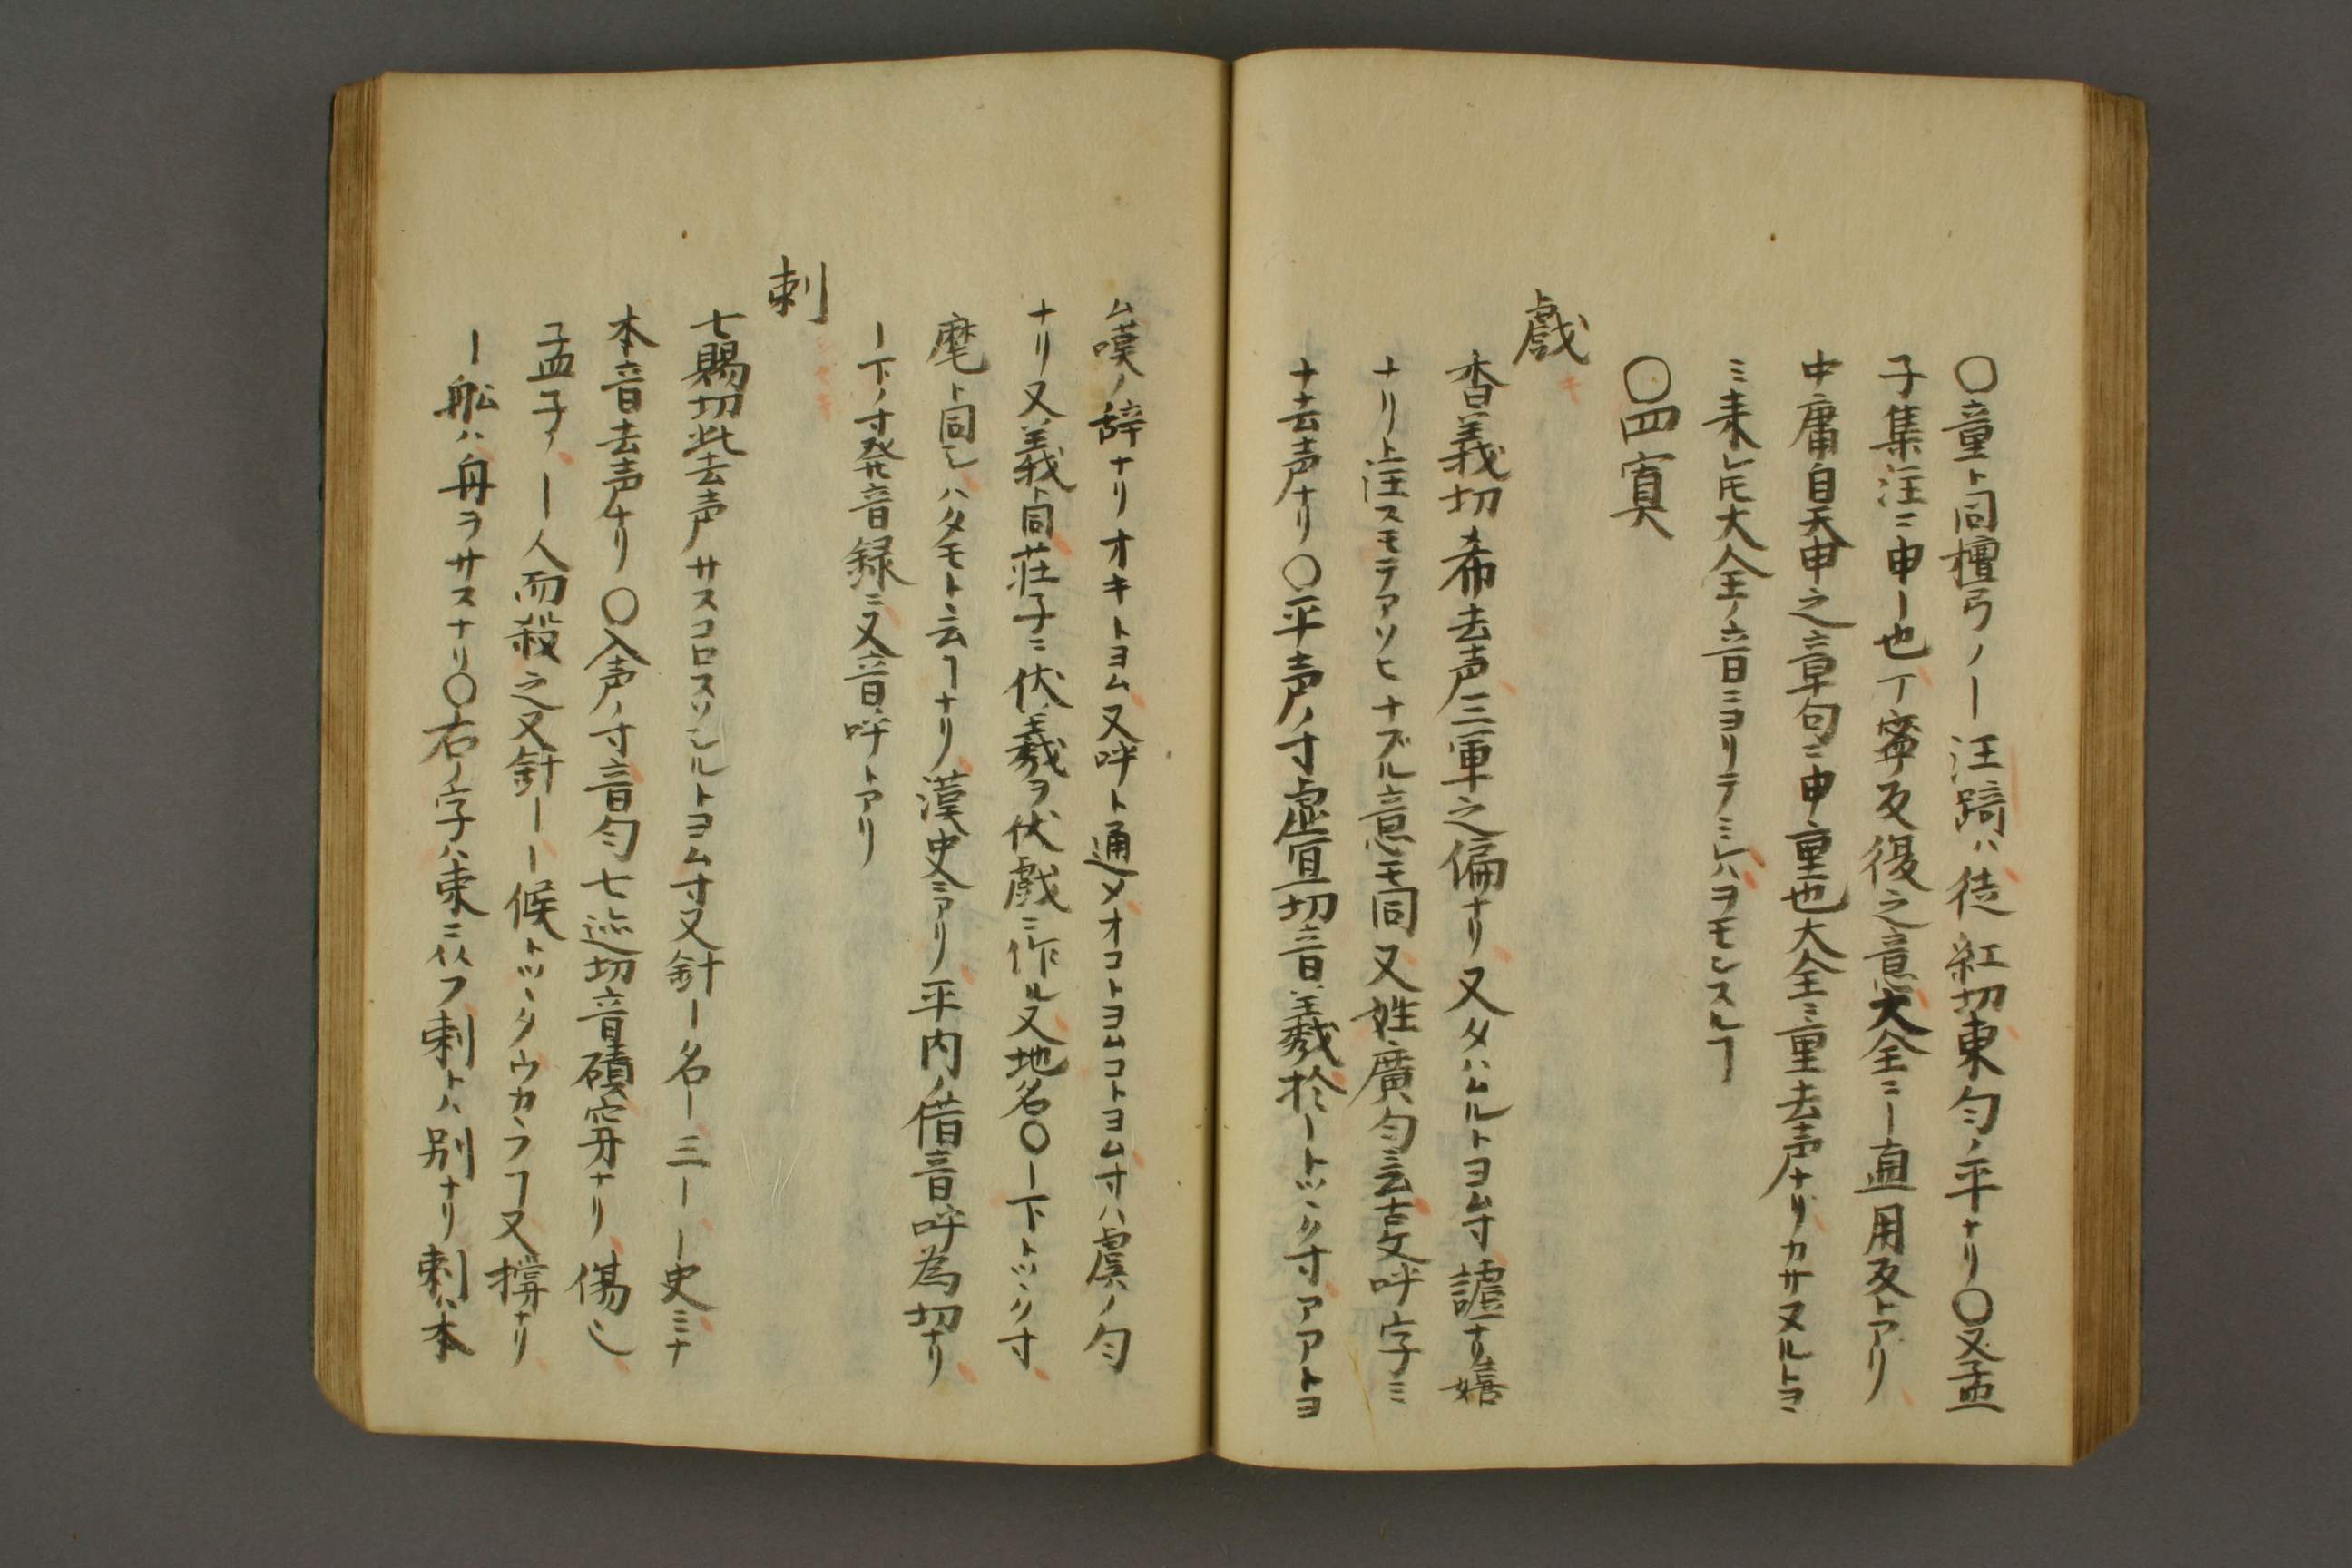 〇童ト同檀弓ノー汪踦ハ徒紅切東匀ノ平ナリ〇又孟
子集注ニ申ー也丁寧反復之意大全ニー直用反トアリ
中庸自天申之章句ニ申重也大全ニ重去声ナリカサヌルトヨミ
ミ来レ𪜈大全ノ音ニヨリテミレハヲモンスルヿ
〇四寘
戯
キ
香義切希去声三軍之偏ナリ又タハムルトヨム寸謔ナリ嬉
ナリト注スモテアソヒナブル意モ同又姓廣匀云古文呼字ミ
ナ去声ナリ〇平声ノ寸虚宜切音羲於ートツヽク寸アアトヨ
ム嘆ノ辞ナリオキトヨム又呼ト通メオコトヨムコトヨム寸ハ虞ノ匀
ナリ又義ト同荘子ニ伏羲ヲ伏戯ニ作ル又地名〇ー下トツヽク寸
麾ト同シハタモト云ヿナリ漢史ニアリ平内ノ借音呼為切ナリ
ー下ノ寸発音録ニ又音呼トアリ
刺
シセキ
七賜切此去声サスコロスソシルトヨム寸又針ー名ー三ーー史ミナ
本音去声ナリ〇入声ノ寸音匀七迹切音磧穿ナリ傷也
孟子ノーー人而殺之又針ーー候トツヽクウカヽフヿ又撐ナリ
ー船ハ舟ヲサスナリ〇右ノ字ハ朿ニ从フ剌トハ別ナリ刺ハ本